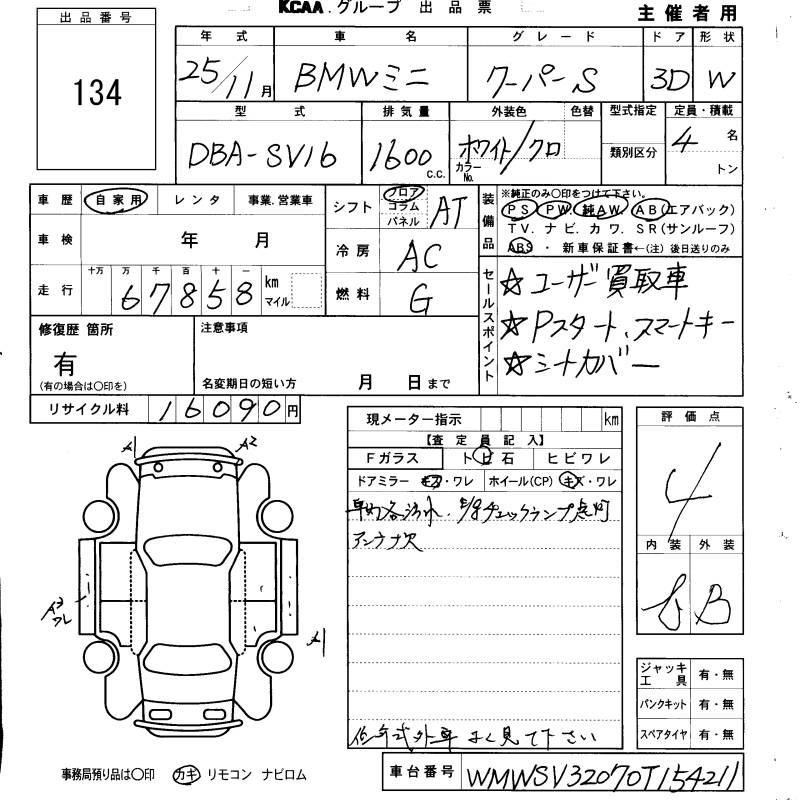 KCAA.グループ 出品票
主催者用
出品番号
134
年式 車名 グレード ドア 形状
25/11月 BMWミニ クーパーS 3D W
型式 排気量 外装色 色替 型式指定 定員・積載
DBA-SV16 1600 c.c. ホワイト/クロ カラーNo. 類別区分 4 名
トン
車歴 自家用 レンタ 事業.営業車
シフト フロア コラム パネル AT
車検 年 月
冷房 AC
走行 十万 万 千 百 十 一
67858 km マイル
燃料 G
装備品 ※純正のみ〇印をつけて下さい。
PS PW. 純AW. AB(エアバック)
TV. ナビ. カワ. SR(サンルーフ)
ABS ・ 新車保証書←(注) 後日送りのみ
セールスポイント
☆ユーザー買取車
☆Pスタート、スマートキー
☆シートカバー
修復歴 箇所
有
(有の場合は〇印を)
注意事項
名変期日の短い方 月 日まで
リサイクル料 16090円
現メーター指示 km
【査定員記入】
Fガラス トビ石 ヒビワレ
ドアミラー キズ・ワレ ホイール(CP) キズ・ワレ
チェックランプ点灯
アンテナ欠
低年式外車 よく見て下さい
評価点
4
内装 外装
B
ジャッキ工具 有・無
パンクキット 有・無
スペアタイヤ 有・無
A1 A2
A3
ワレ
A1
事務局預り品は〇印 カギ リモコン ナビロム
車台番号 WMWSV32070T154211